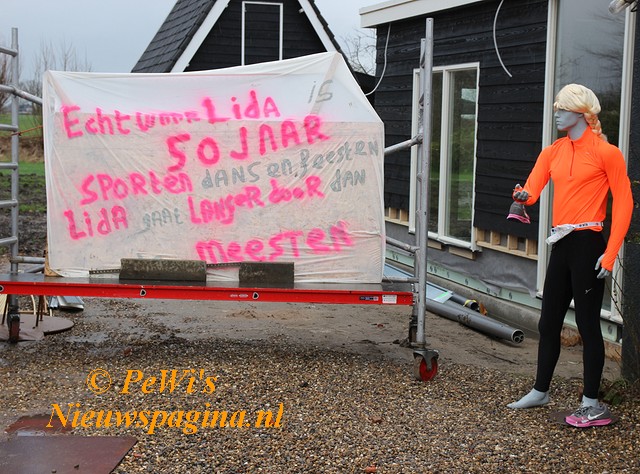 is
Echt waar Lida
50 JAAR
SPORTEN dANSen, feesten
Lida gaat LANGER door dAN
meesten
© PeWi's
Nieuwspagina.nl